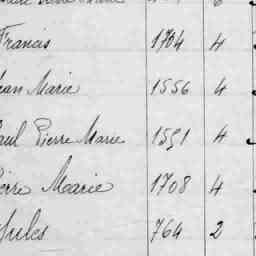 Francis 1704 4
Jean Marie 1556 4
Paul Pierre Marie 1591 4
Pierre Marie 1708 4
Jules 764 2